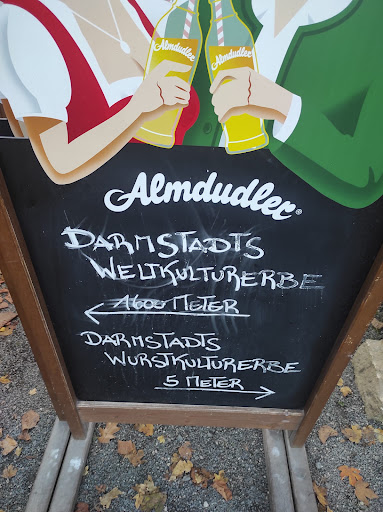 Almdudler
Almdudler
Almdudler®
DARMSTADTS
WELTKULTURERBE
1600 METER
DARMSTADTS
WURSTKULTURERBE
5 METER